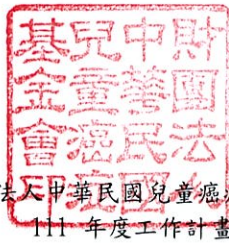 財團法人
中華民國
兒童癌症
基金會
法人中華民國兒童癌
111 年度工作計畫